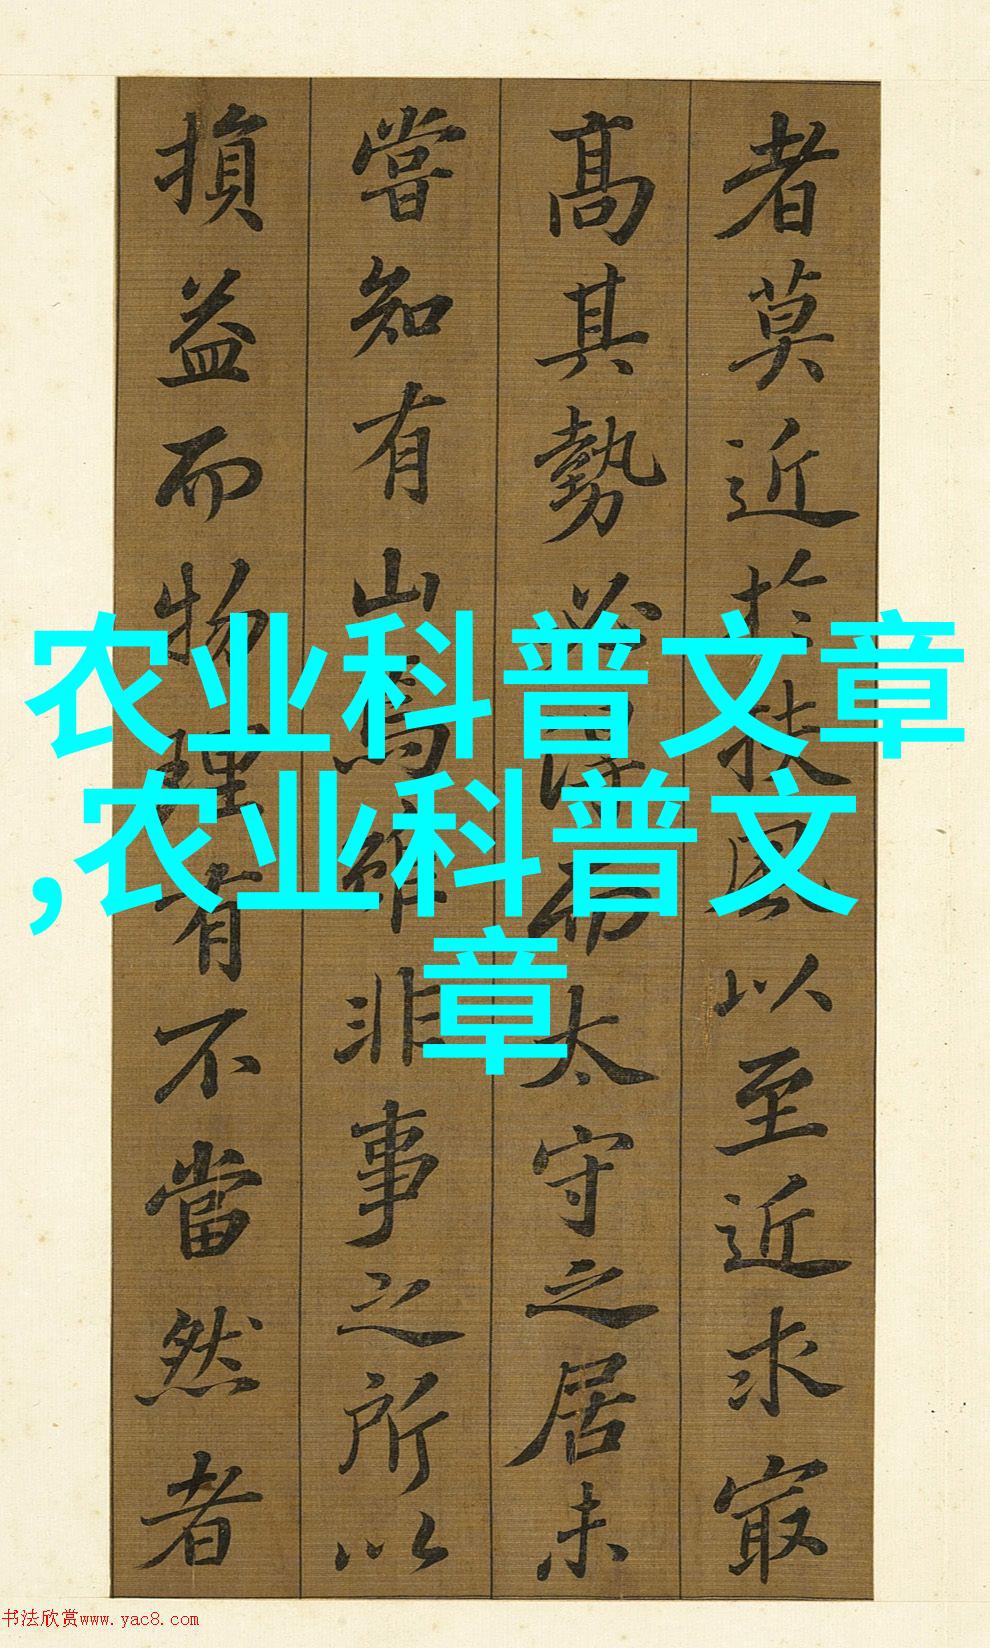 者莫近於扶風以至近求最
高其勢必得而太守之居未
嘗知有山焉雖非事之所以
損益而物理有不當然者
农业科普文章
,农业科普文
章
书法欣赏www.yac8.com